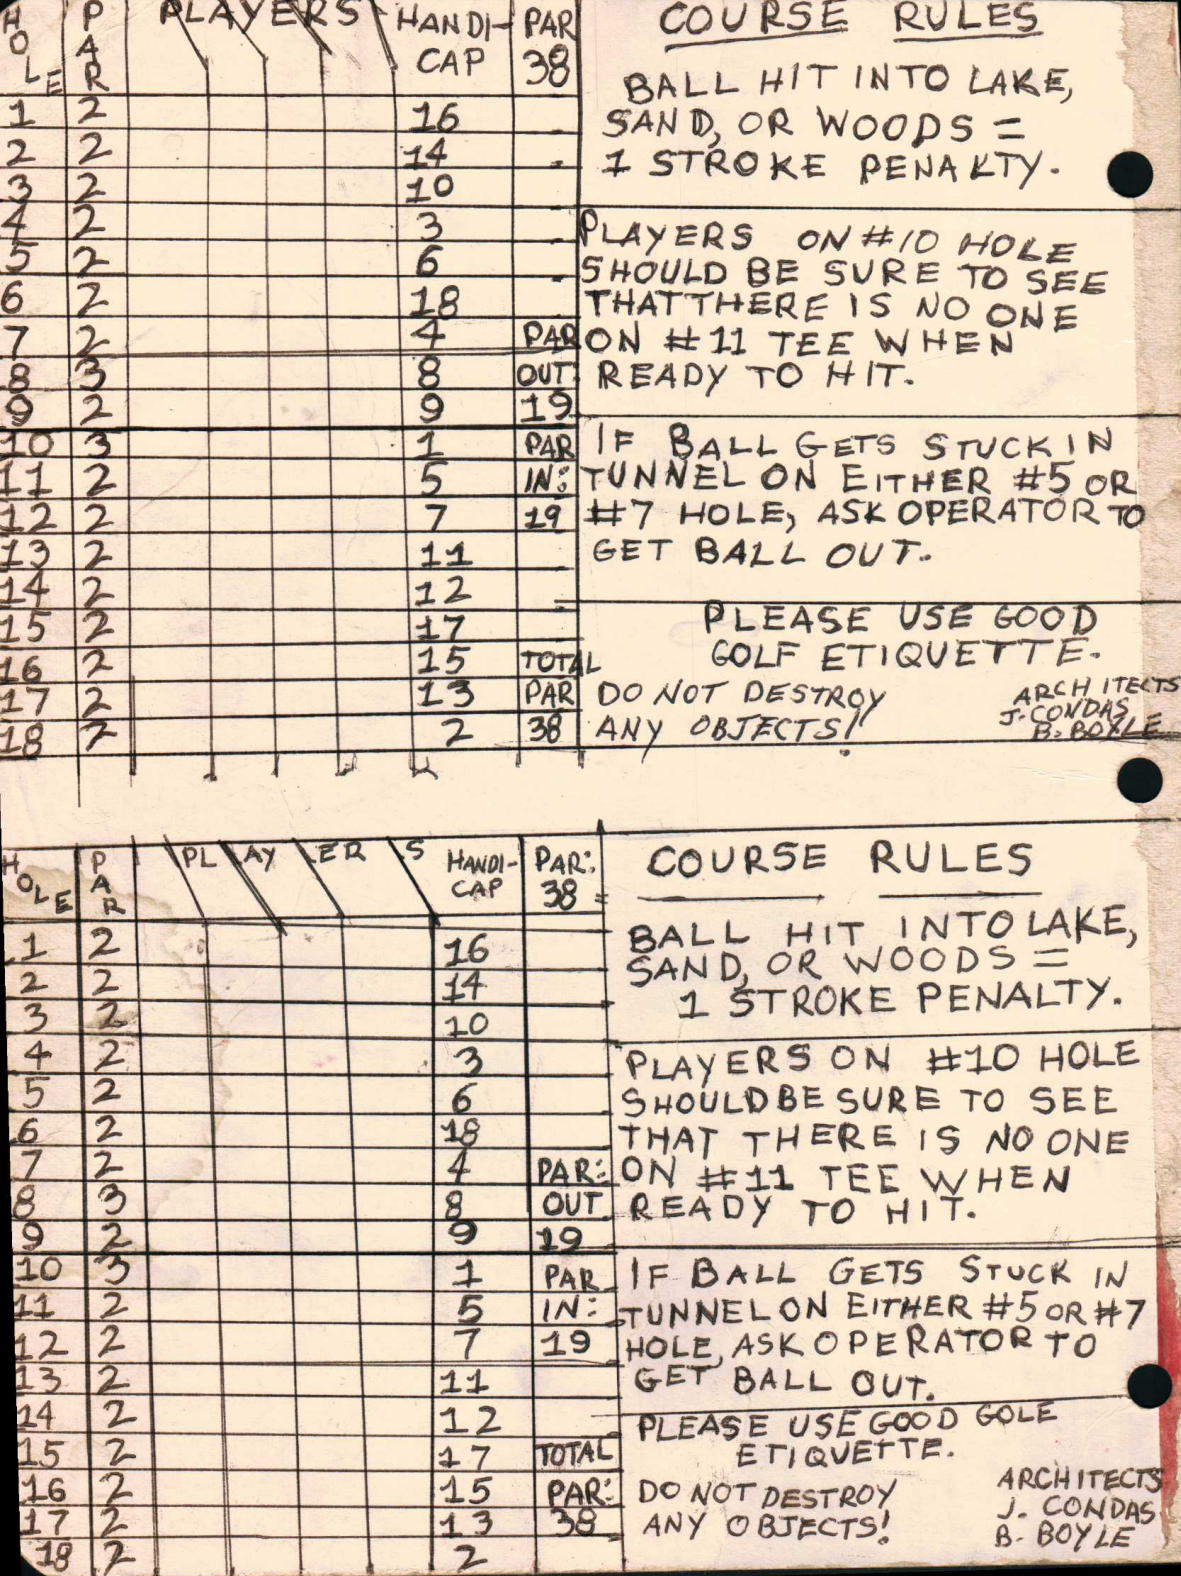 HOLE PAR PLAYERS HANDI-CAP PAR 38
1 2 16
2 2 14
3 2 10
4 2 3
5 2 6
6 2 18
7 2 4 PAR
8 3 8 OUT:
9 2 9 19
10 3 1 PAR
11 2 5 IN:
12 2 7 19
13 2 11
14 2 12
15 2 17
16 2 15 TOTAL
17 2 13 PAR
18 2 2 38
COURSE RULES
BALL HIT INTO LAKE,
SAND, OR WOODS =
1 STROKE PENALTY.
PLAYERS ON #10 HOLE
SHOULD BE SURE TO SEE
THAT THERE IS NO ONE
ON #11 TEE WHEN
READY TO HIT.
IF BALL GETS STUCK IN
TUNNEL ON EITHER #5 OR
#7 HOLE, ASK OPERATOR TO
GET BALL OUT.
PLEASE USE GOOD
GOLF ETIQUETTE.
DO NOT DESTROY
ANY OBJECTS!
ARCHITECTS
J. CONDAS
B. BOYLE
HOLE PAR PLAYERS HANDI-CAP PAR: 38
1 2 16
2 2 14
3 2 10
4 2 3
5 2 6
6 2 18
7 2 4 PAR:
8 3 8 OUT
9 2 9 19
10 3 1 PAR
11 2 5 IN:
12 2 7 19
13 2 11
14 2 12
15 2 17 TOTAL
16 2 15 PAR:
17 2 13 38
18 2 2
COURSE RULES
BALL HIT INTO LAKE,
SAND, OR WOODS =
1 STROKE PENALTY.
PLAYERS ON #10 HOLE
SHOULD BE SURE TO SEE
THAT THERE IS NO ONE
ON #11 TEE WHEN
READY TO HIT.
IF BALL GETS STUCK IN
TUNNEL ON EITHER #5 OR #7
HOLE, ASK OPERATOR TO
GET BALL OUT.
PLEASE USE GOOD GOLF
ETIQUETTE.
DO NOT DESTROY
ANY OBJECTS!
ARCHITECTS
J. CONDAS
B. BOYLE